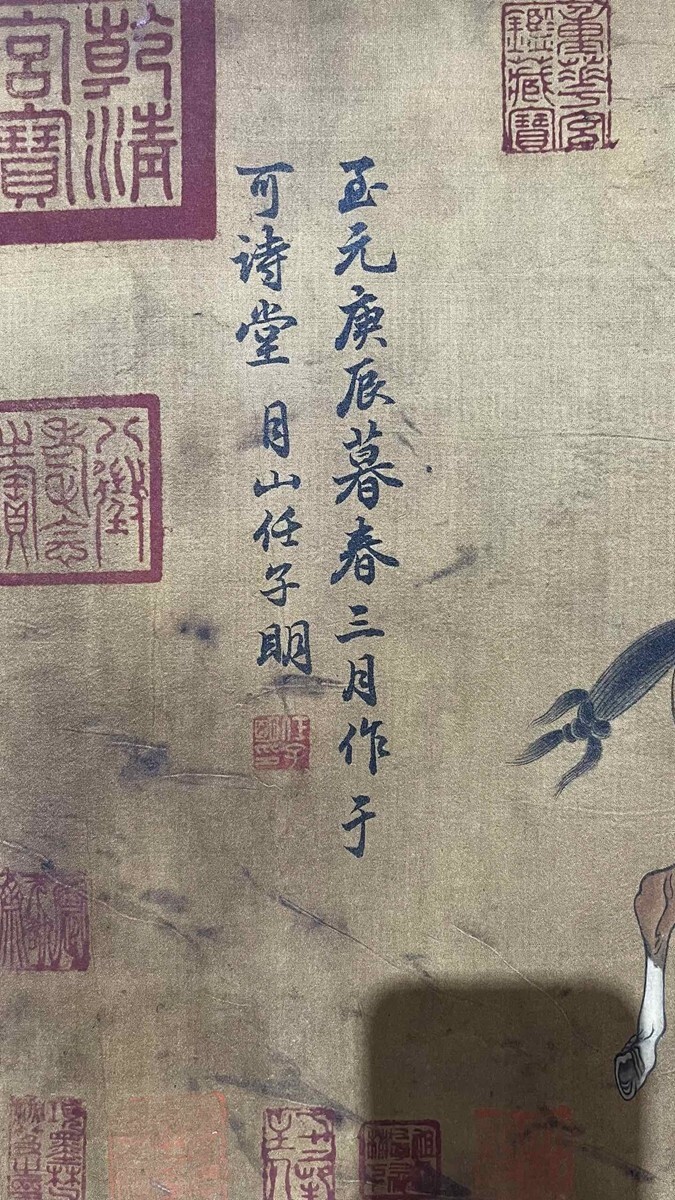 重華宮
鑑藏寶
至元庚辰暮春三月作于
可诗堂 月山任子明
任子
明印
乾清
宮寶
八徵
耄念
之寶